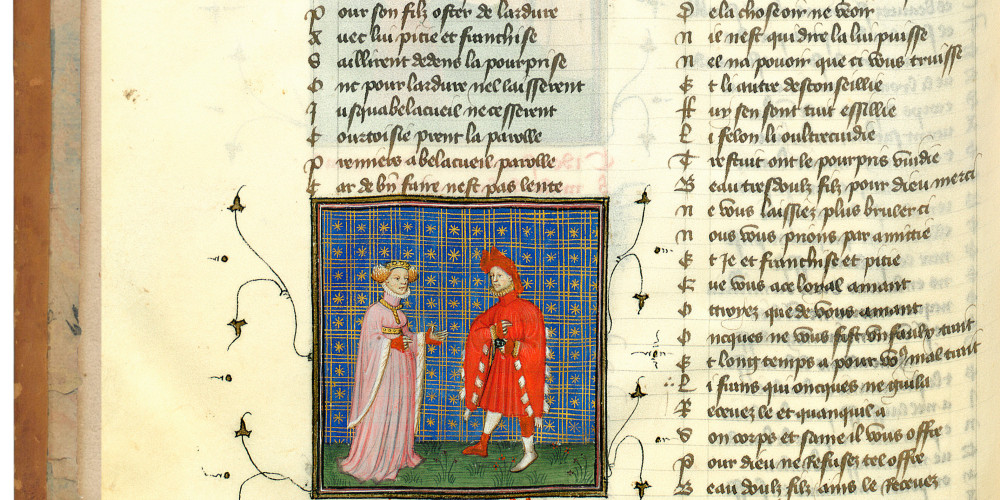 Pour son filz oster de lardure
Avec lui pitie et franchise
Saillirent dedens la pourprise
Onc pour lardure nel laissierent
Jusqua belacueil ne cesserent
Courtoisie prent la parolle
Premiers a belacueil parolle
Car de bn faire nest pas lente
De la chose oir ne veoir
Nie nest qui dire la lui puisse
Nel na pouoir que ci vous truisse
Et li autre desconseillie
Fuy sen sont tuit essillie
Li felon li oultrecuidie
Trestuit ont le pourpris vuidie
Beau tresdoulz filz pour dieu merci
Ne vous laissiez plus bruler ci
Nous vous prions par amitie
Et Je et franchise et pitie
Que vous a ce loyal amant
Ottroyez que de vous amant
Oncques ne vous fist un faulx tait
Et long temps a pour vo9 mal trait
Li frans qui oncques ne guila
Recevez le et quanquil a
Son corps et same il vous offre
Pour dieu ne Refusez tel offre
Beau doulz filz ains le Recevez